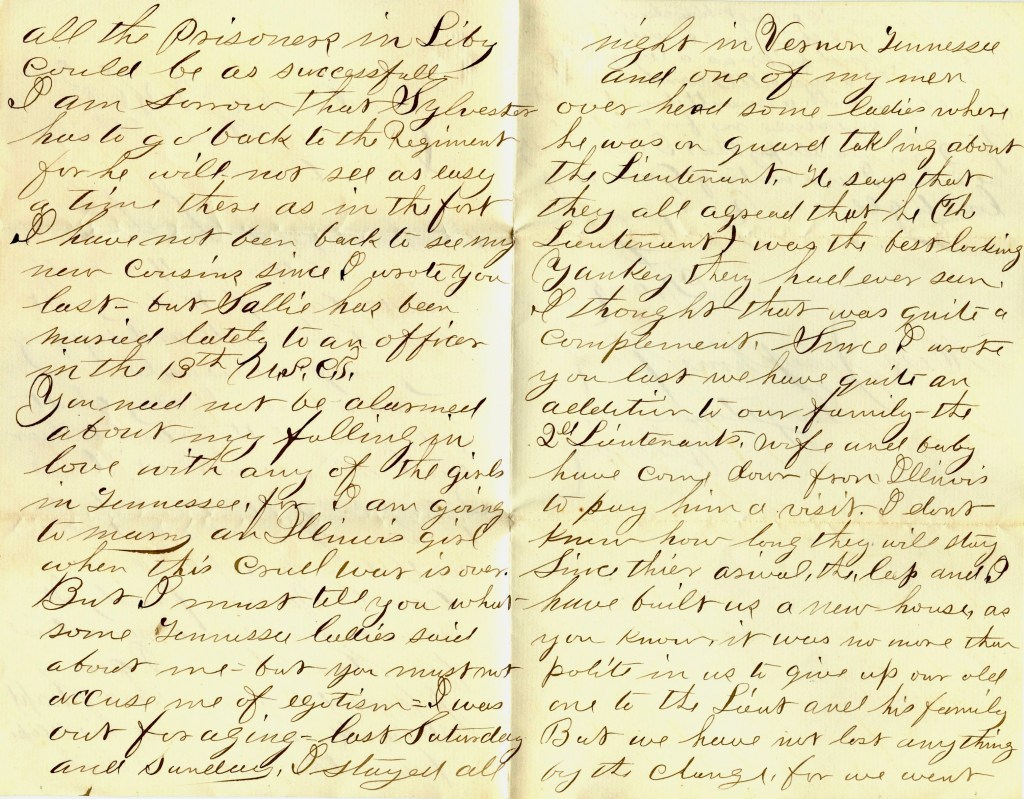 all the Prisoners in Liby
could be as successfull
I am sorrow that Sylvester
has to go back to the Regiment
for he will not see as easy
a time there as in the fort
I have not been back to see my
new cousins since I wrote you
last - but Sallie has been
maried lately to an officer
in the 13th U.S.C.T.
You need not be alarmed
about my falling in
love with any of the girls
in Tennessee, for I am going
to marry an Illinois girl
when this cruel war is over.
But I must tell you what
some Tennessee ladies said
about me - but you must not
accuse me of egotism - I was
out foraging - last Saturday
and Sunday, I stayed all
night in Vernon Tennessee
and one of my men
over herd some ladies where
he was on guard talking about
the Lieutenant. He says that
they all agread that he (the
Lieutenant) was the best looking
Yankey they had ever seen.
I thought that was quite a
complement. Since I wrote
you last we have quite an
addition to our family - the
2d Lieutenants, wife and baby
have come down from Illinois
to pay him a visit. I dont
know how long they will stay
Since thier arival, the and I
have built us a new house, as
you know, it was no more than
polite in us to give up our old
one to the Lieut and his family
But we have not lost anything
by the change, for we went